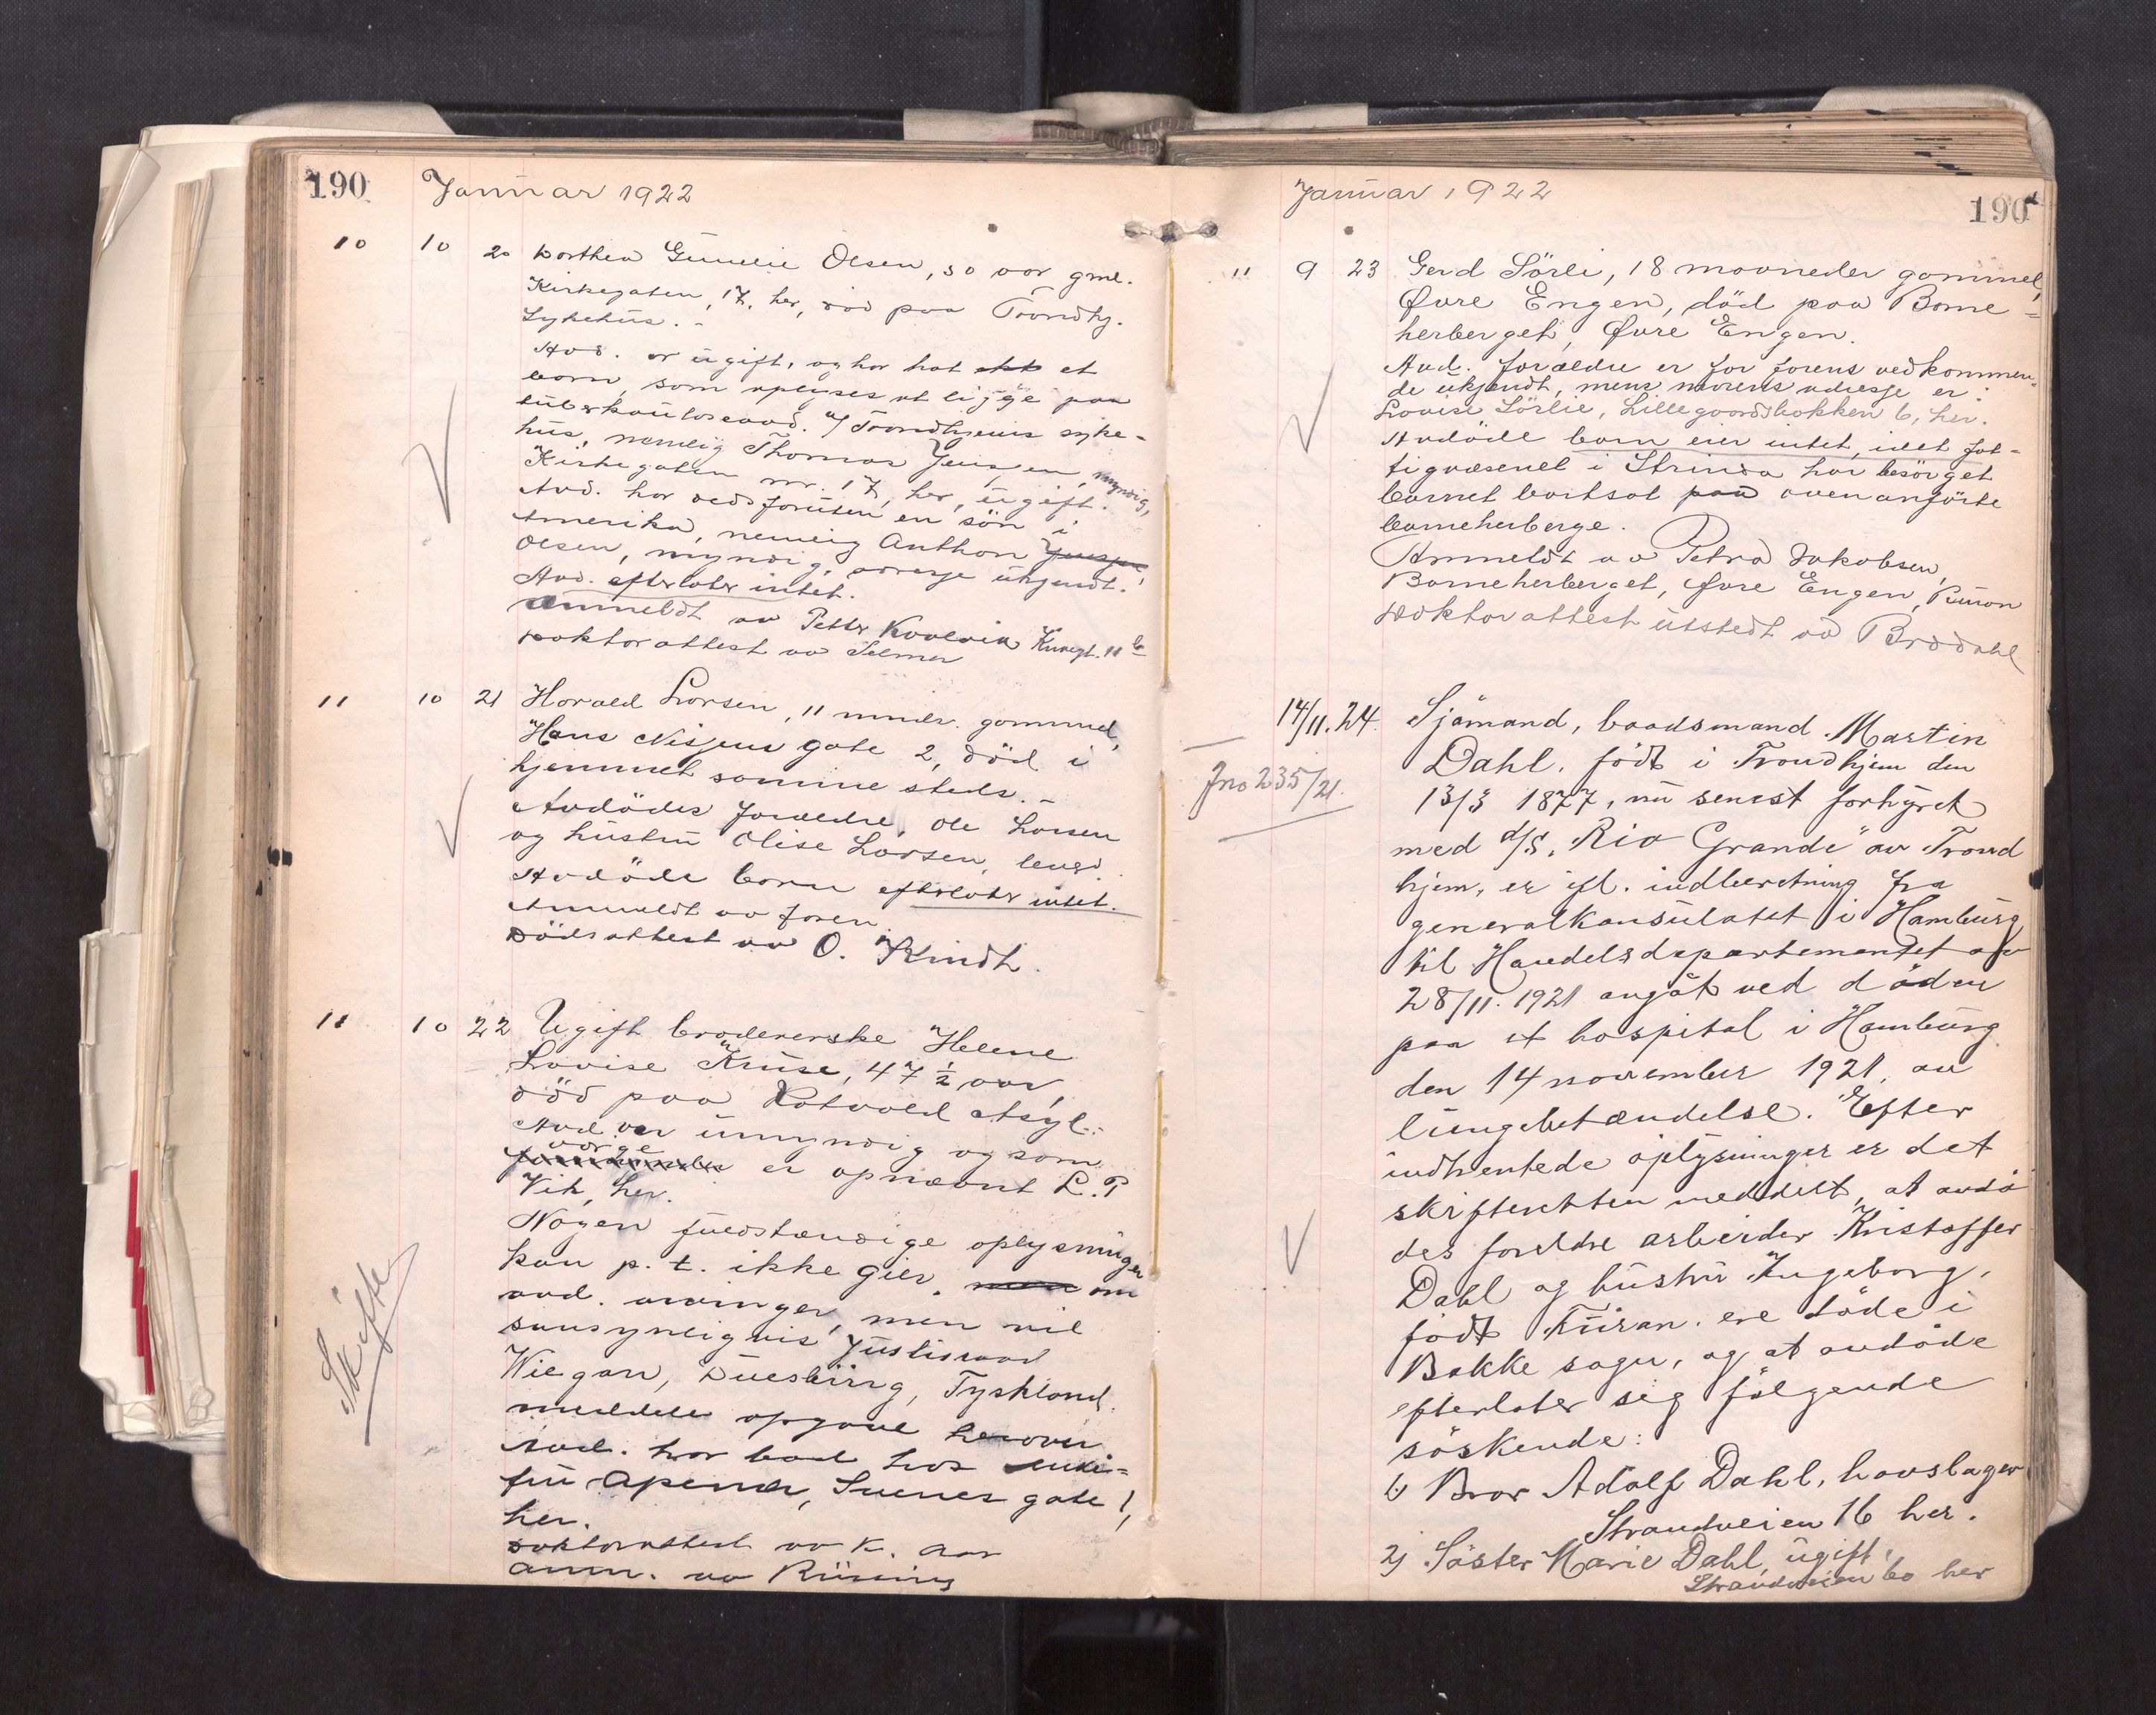 190 Januar 1922
10 10 20 Dorthea Gunelie Olsen, 50 aar gml.
Kirkegaten 17, her, død paa Trondhj.
Sykehus. -
Avd. er ugift, og har hat et
barn, som oplyses at ligge paa
tuberkuloseavd. v/ Trondhjems syke-
hus, nemlig Thomas Jensen, myndig,
Kirkegaten nr. 17, her, ugift.
Avd. har vedsforuten en sön i
Amerika, nemlig Anthon
Olsen, myndig, adresse ukjendt.
Avd. efterlater intet.
Anmeldt av Petter Kvolvik Kirkegt. 11 b
Doktorattest av Selmer
11 10 21 Harald Larsen, 11 mndr. gammel,
Hans Nissens gate 2, död i
hjemmet samme steds. -
Avdödes forældre, Ole Larsen
og hustru Olise Larsen, lever.
Avdöde barn efterlater intet.
Anmeldt av faren
Dödsattest av O. Kindt.
11 10 22 Ugift brodererske Helene
Lovise Kruse, 47 1/2 aar,
död paa Rotvold Asyl.
Avd. var umyndig og som
værge er opnævnt L. P.
Vik, her.
Nogen fuldstændige oplysninger
kan p. t. ikke gies, om
avd. arvinger, men vil
sansynligvis Justisraad
Wiegan, Duesburg, Tyskland.
meddele opgave herover.
Avd. har bod hos enke-
fru Apenes, Suems gate 1,
her.
Doktorattest av K. Aas
Anm. av Rüning
Skifte
Januar 1922 190
11 9 23 Gerd Sörli, 18 maaneder gammel,
Øvre Engen, död paa Barne-
herberget, Øvre Engen.
Avd. forældre er for farens vedkommen-
de ukjendt, mens morens adresse er:
Lovise Sörlie, Lillegaardsbakken 6, her.
Avdöde barn eier intet, idet fat-
tigvæsenet i Strinda har besörget
barnet bortsat paa ovenanförte
barneherberge.
Anmeldt av Petra Jakobsen,
Barneherberget, Øvre Engen,
Doktorattest utstedt av Brodahl
14/11. 24. Sjömand, baadsmand Martin
Jno 235/21. Dahl, födt i Trondhjem den
13/3 1877, nu senest forhyret
med d/s. "Rio Grande" av Trond
hjem, er ifl. indberetning fra
generalkonsulatet i Hamburg
til Handelsdepartementet av
28/11. 1921 avgåt ved döden
paa et hospital i Hamburg
den 14 november 1921, av
lungebetændelse. Efter
indhentede oplysninger er det
skifteretten meddelt, at avdö
des foreldre arbeider Kristoffer
Dahl og hustru Ingeborg,
födt Turan. ere döde i
Bakke sogn, og at avdöde
efterlater sig fölgende
söskende:
1) Bror Adolf Dahl, hovslager
Strandveien 16 her.
2) Söster Marie Dahl, ugift,
Strandveien 60 her